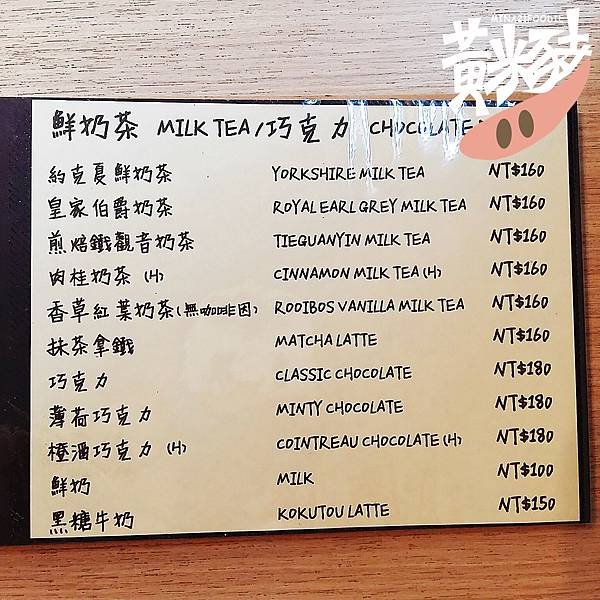 MINAZIFOODIE
黃米豬
鮮奶茶 MILK TEA/巧克力 CHOCOLATE
約克夏鮮奶茶 YORKSHIRE MILK TEA NT$160
皇家伯爵奶茶 ROYAL EARL GREY MILK TEA NT$160
煎焙鐵觀音奶茶 TIEGUANYIN MILK TEA NT$160
肉桂奶茶 (H) CINNAMON MILK TEA (H) NT$160
香草紅葉奶茶(無咖啡因) ROOIBOS VANILLA MILK TEA NT$160
抹茶拿鐵 MATCHA LATTE NT$160
巧克力 CLASSIC CHOCOLATE NT$180
薄荷巧克力 MINTY CHOCOLATE NT$180
橙酒巧克力 (H) COINTREAU CHOCOLATE (H) NT$180
鮮奶 MILK NT$100
黑糖牛奶 KOKUTOU LATTE NT$150